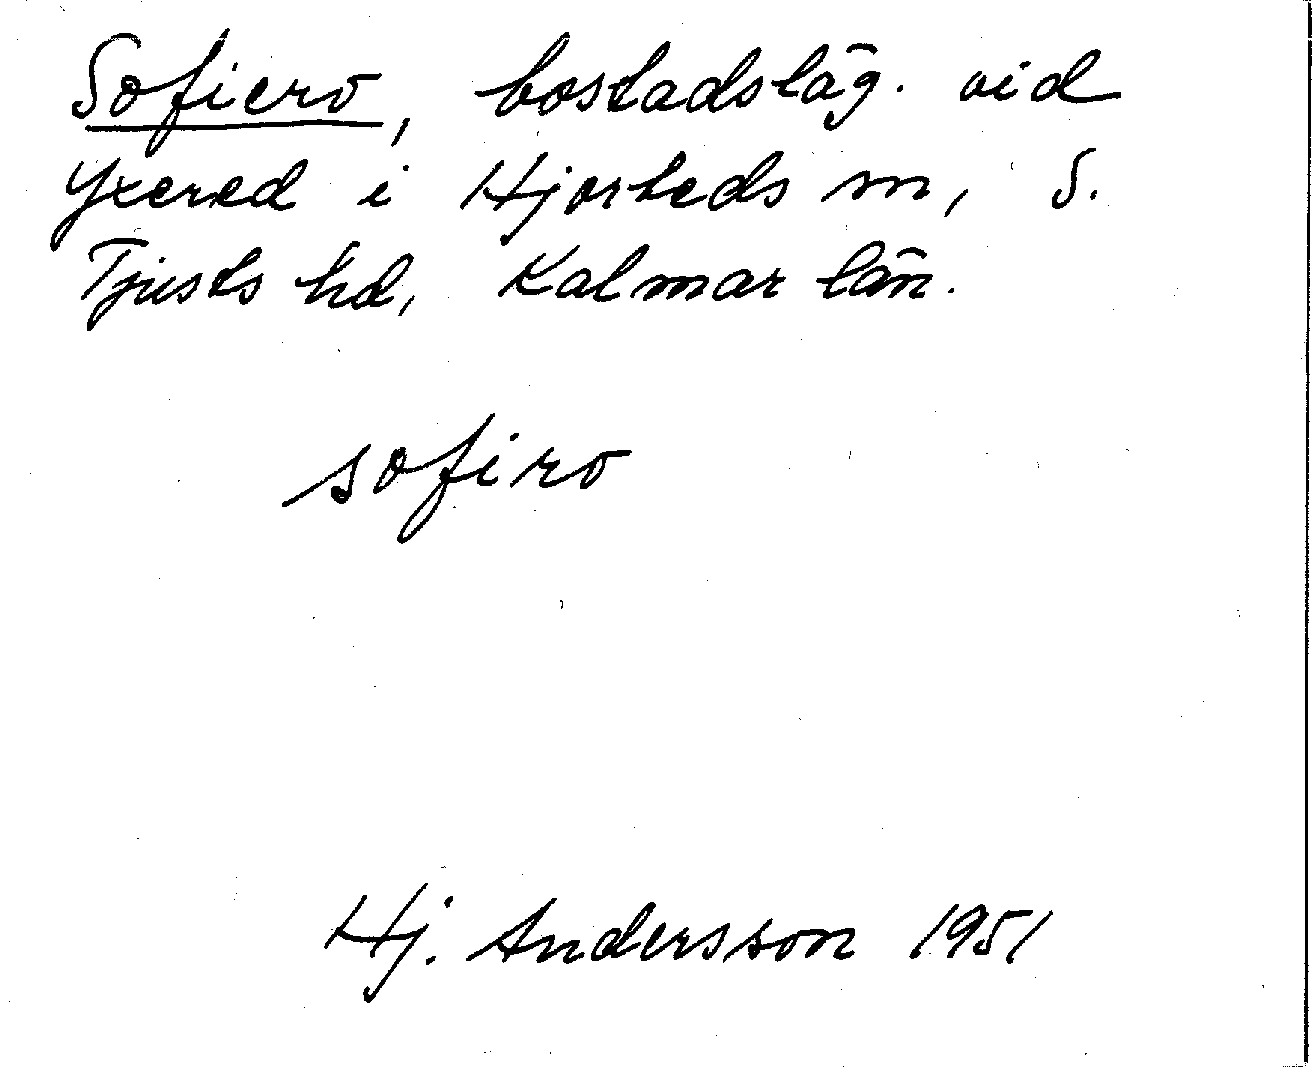 Sofiero, bostadsläg. vid
Yxered i Hjorteds sn, S.
Tjusts hd, Kalmar län.
sofiro
Hj. Andersson 1951